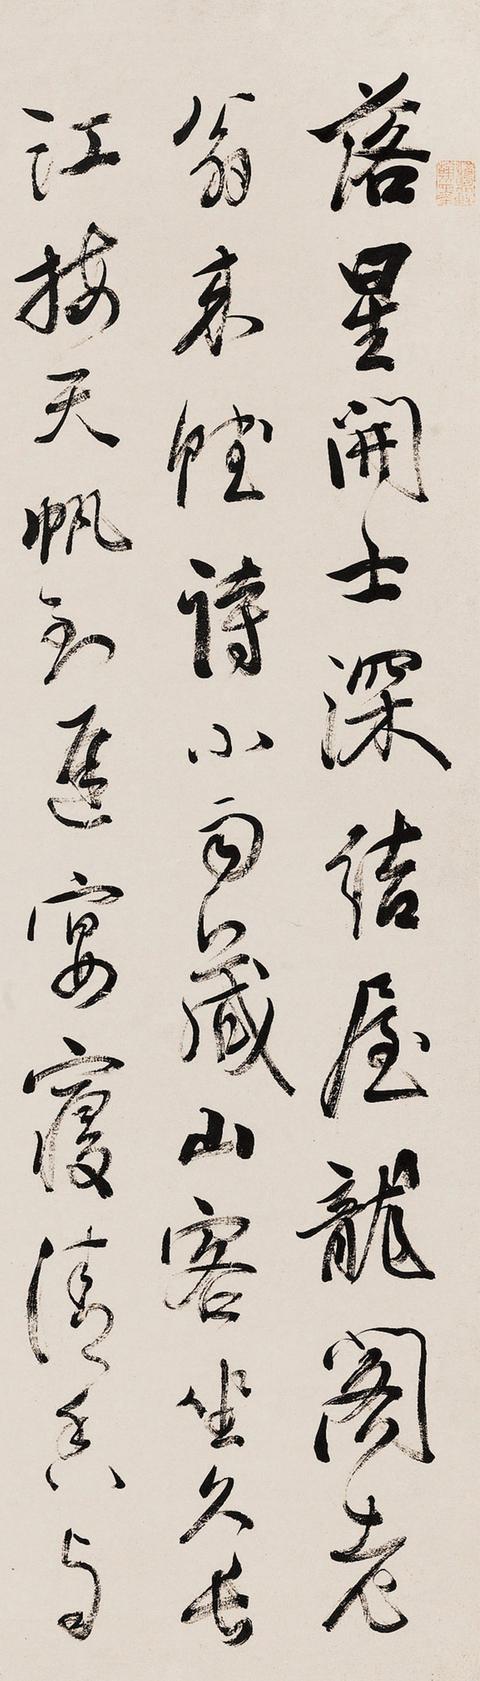 落星開士深結屋龍閣老
翁來賦詩小雨藏山客坐久長
江接天帆到遲宴寢清香與